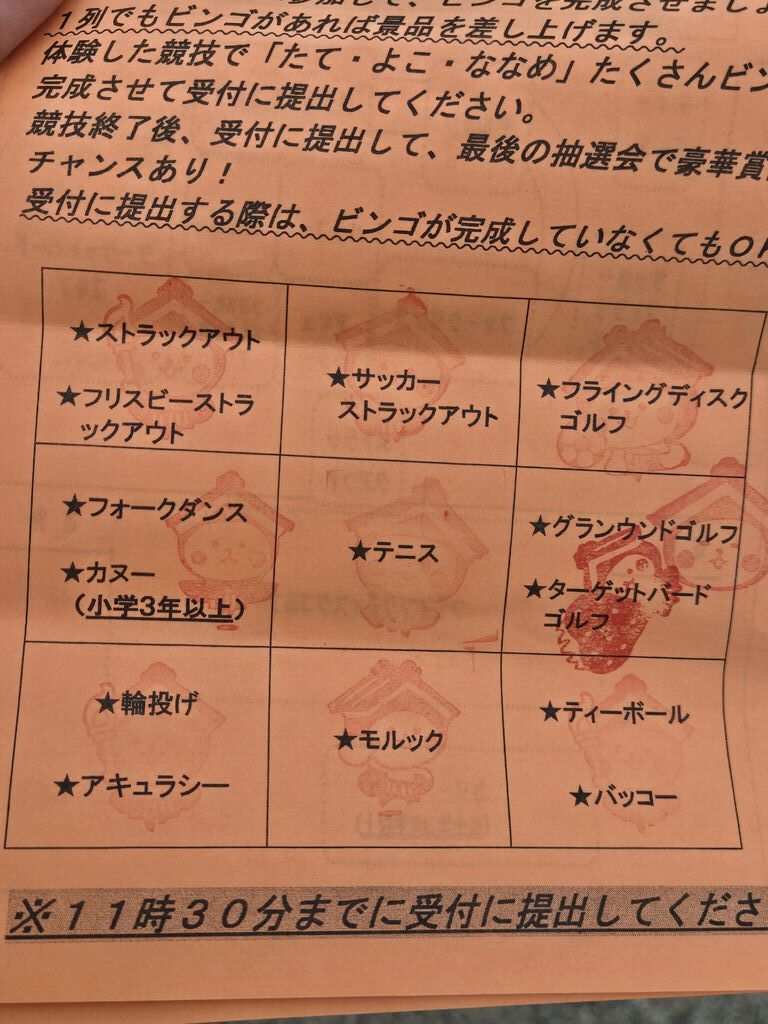 参加して、ビンゴを完成させましょ
1列でもビンゴがあれば景品を差し上げます。
体験した競技で「たて・よこ・ななめ」たくさんビン
完成させて受付に提出してください。
競技終了後、受付に提出して、最後の抽選会で豪華賞
チャンスあり！
受付に提出する際は、ビンゴが完成していなくてもOK
★ストラックアウト
★フリスビーストラ
ックアウト
★サッカー
ストラックアウト
★フライングディスク
ゴルフ
★フォークダンス
★カヌー
（小学3年以上）
★テニス
★グランウンドゴルフ
★ターゲットバード
ゴルフ
★輪投げ
★アキュラシー
★モルック
★ティーボール
★バッコー
※11時30分までに受付に提出してくださ